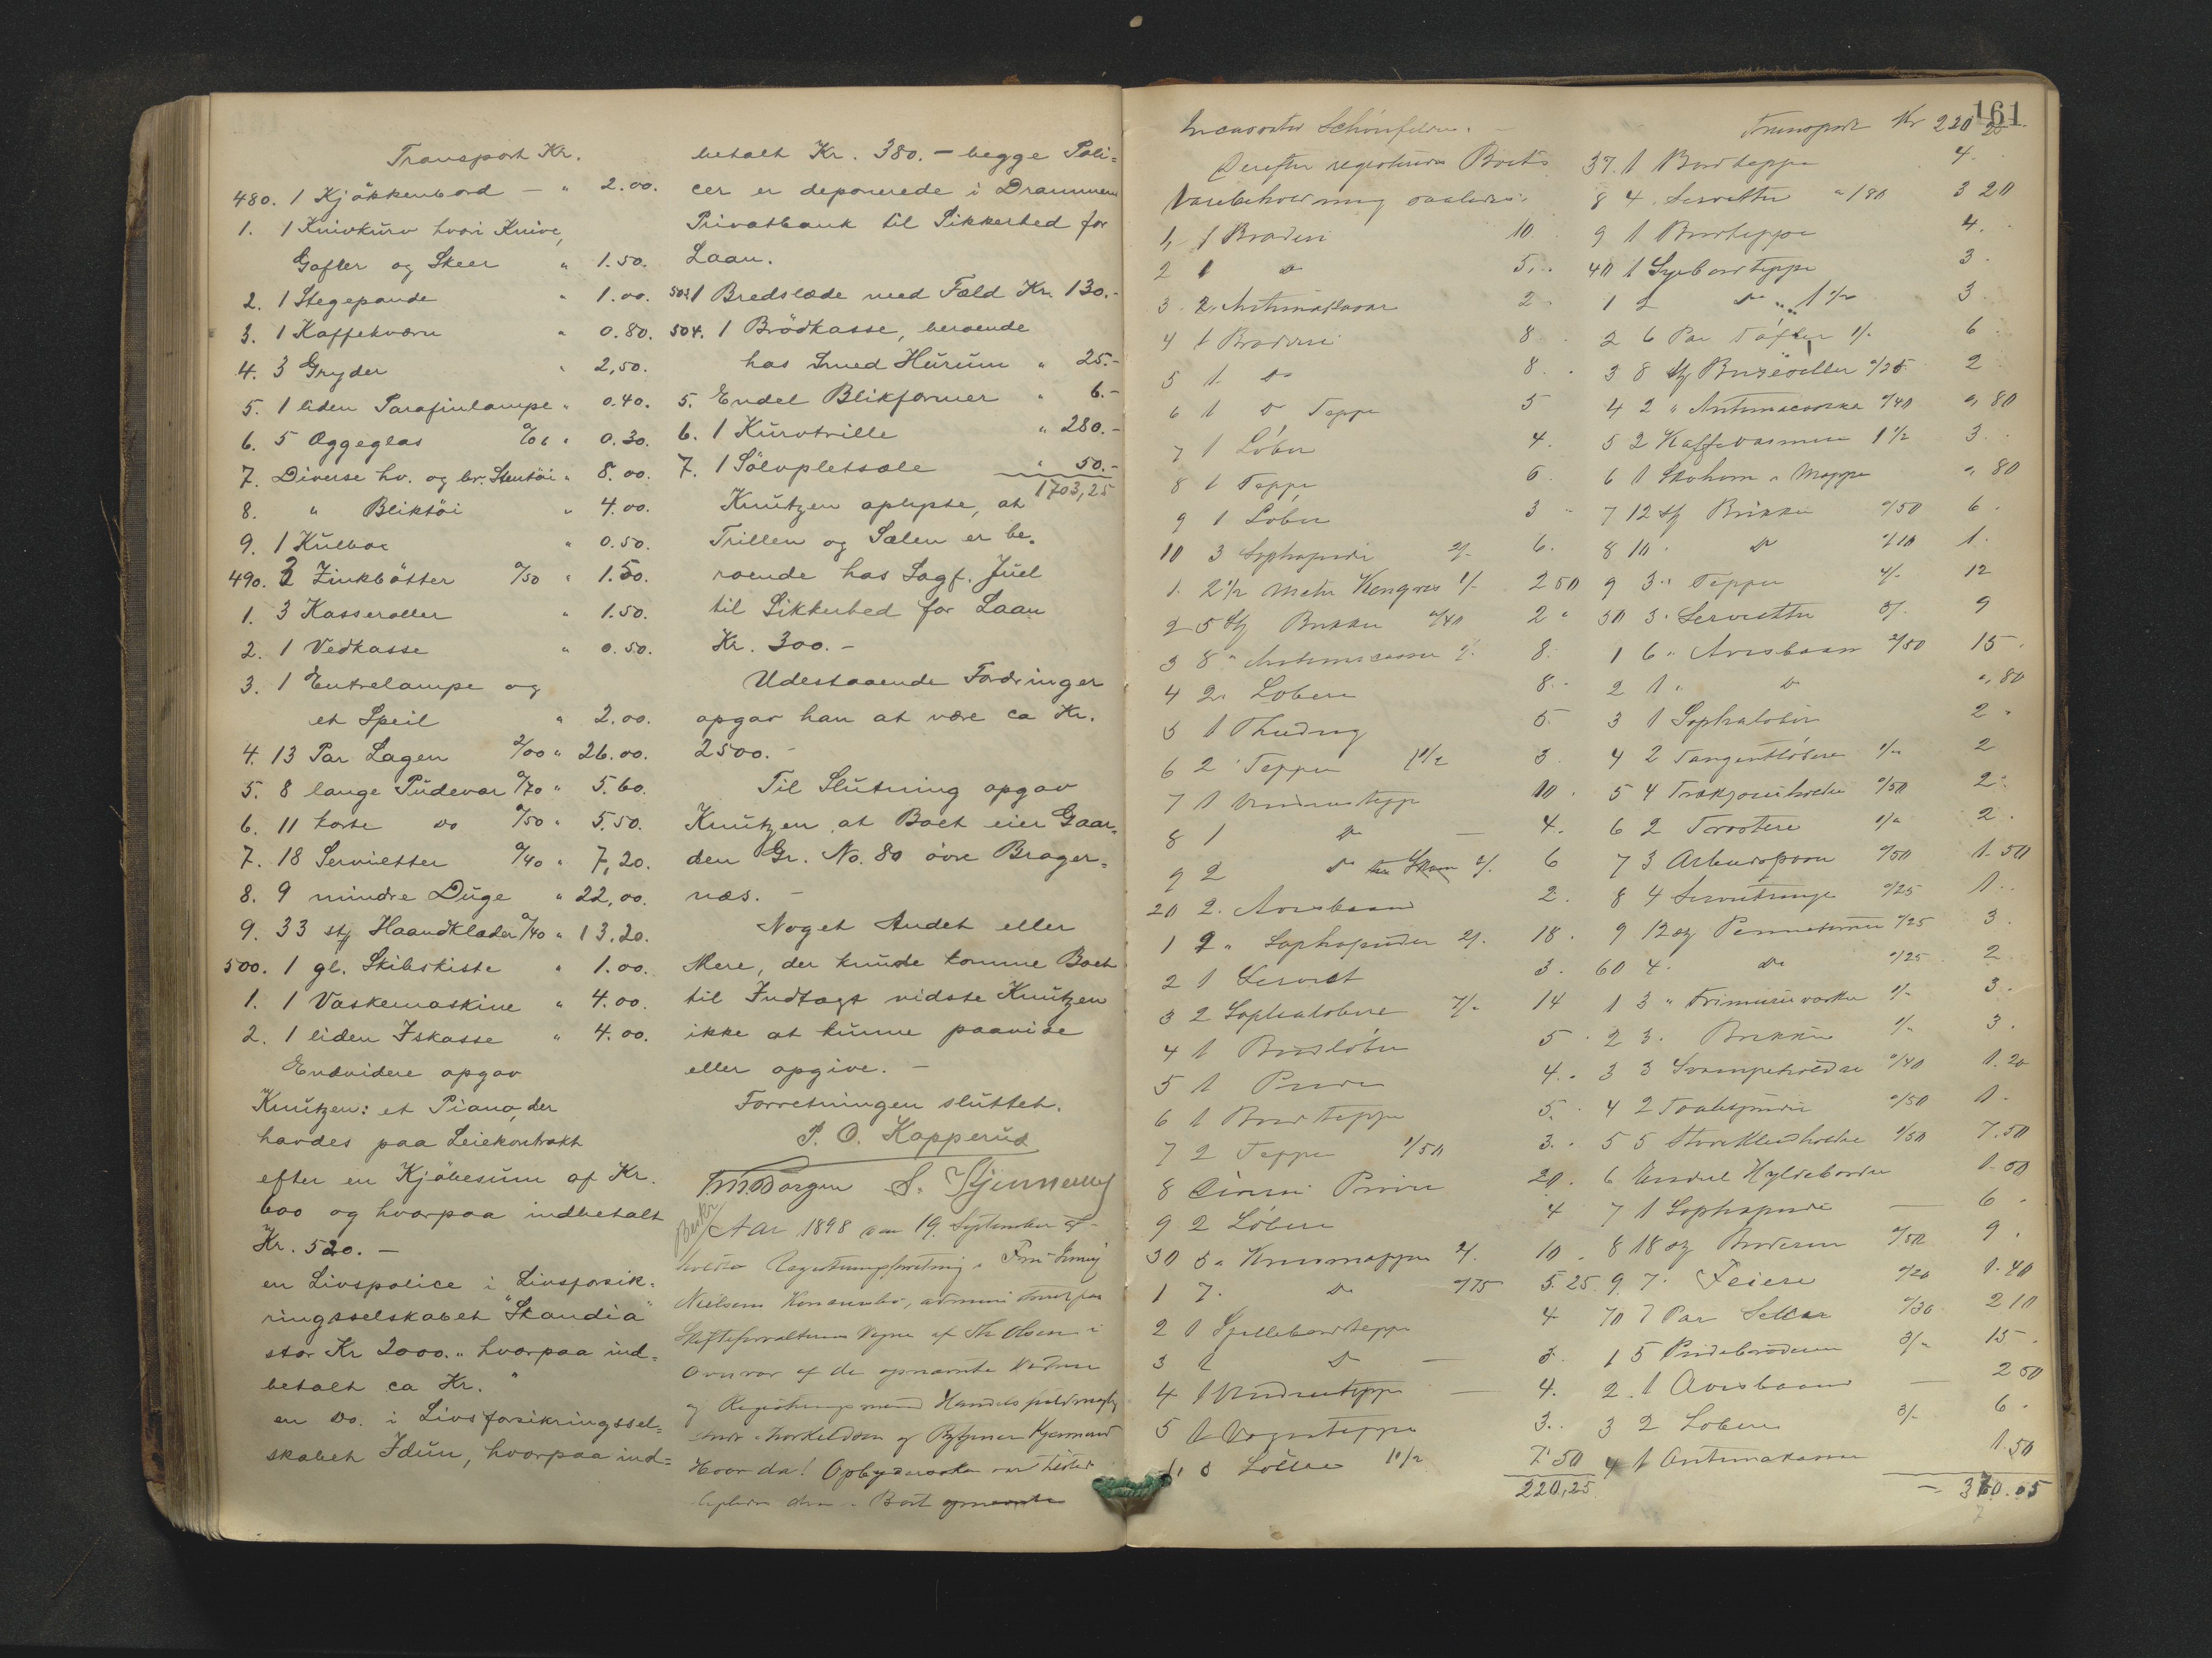 Transport Kr.
480. 1 Kjökkenbord — " 2.00.
1. 1 Knivkurv hvori Knive,
Gafler og Skeer " 1.50.
2. 1 Stegepande " 1.00.
3. 1 Kaffekværn " 0.80.
4. 3 Gryder " 2,50.
5. 1 liden Parafinlampe " 0.40.
6. 5 Æggeglas " 0.30.
7. Diverse hv. og br. Stentöi " 8.00.
8. " Bliktöi " 4.00.
9. 1 Kulbox " 0.50.
490. 3 Zinkbötter 0/50 " 1.50.
1. 3 Kasseroller " 1.50.
2. 1 Vedkasse " 0.50.
3. 1 Entrelampe og
et Speil " 2.00.
4. 13 Par Lagen 2/00 " 26.00.
5. 8 lange Pudevar 0/70 " 5.60.
6. 11 korte do 0/50 " 5.50.
7. 18 Servietter 0/40 " 7,20.
8. 9 mindre Duge " 22,00.
9. 33 stk Haandklæder 0/40 " 13.20.
500. 1 gl. Skibskiste " 1.00.
1. 1 Vaskemaskine " 4.00.
2. 1 liden Iskasse " 4.00.
Endvidere opgav
Knutzen: et Piano, der
havdes paa Leiekontrakt
efter en Kjöbesum af Kr.
600 og hvorpaa indbetalt
Kr. 520. —
en Livspolice i Livsforsik=
ringsselskabet "Skandia"
stor Kr 2000." hvorpaa ind=
betalt ca Kr. "
en do. i Livsforsikringssel=
skabet Idun, hvorpaa ind=
betalt Kr. 380. — begge Poli=
cer er deponerede i Drammens
Privatbank til Sikkerhed for
Laan.
503. 1 Bredslæde med Fæld Kr. 130.-
504. 1 Brödkasse, beroende
hos Smed Hurum " 25.-
5. Endel Blikformer " 6.-
6. 1 Kurvtrille " 280.-
7. 1 Sölvpletsæle " 50.-
1703,25
Knutzen oplyste, at
Trillen og Sælen er be=
roende hos Sagf. Juel
til Sikkerhed for Laan
Kr. 300. -
Udestaaende Fordringer
opgav han at være ca Kr.
2500. -
Til Slutning opgav
Knutzen, at Boet eier Gaar=
den Gr. No. 80 övre Brager=
næs. -
Noget Andet eller
Mere, der kunde komme Boet
til Indtægt vidste Knutzen
ikke at kunne paavise
eller opgive. -
Forretningen sluttet.
P. O. Kopperud
S. Kjennerud
Aar 1898 den 19. September af-
holdtes Registreringsforretning i Fru Jenny
Nielsens Konkursbo, administreret paa
Skifteforvalterens Vegne af Th. Olsen i
Overvær af de opnævnte Vidner
og Registreringsmænd Handelsfuldmægtig
Thorkildsen og Kjennerud
Hvor da!
Boet
161
Incasator Schönfelder.
Derefter registreredes Boets
Varebeholdning saaledes:
1, 1 Broderi 10.
2 1 do 5,.
3. 2. Antimakassar 2.
4 1 Broderi 8
5 1 do 8.
6 1 do Teppe 5
7 1 Löber 4.
8 1 Teppe 6.
9 1 Löber 3
10 3 Sophapuder 2/- 6.
1. 2 1/2 Meter Kongres 1/- 2 50
2 5 Stk Brikker 0/40 2
3 8 " Antimakassar 1/- 8.
4 2. Löbere 8.
5 1 5
6 2 Tepper 1 1/2 3.
7 1 Vinduesteppe 10.
8 1 do — 4.
9 2 do 3/. 6
20 2. Avisbaand 2.
1 9 " Sophapuder 2/. 18.
2 1 Serviet 3.
3 2 Sophalöbere 7/- 14
4 1 Bordlöber 5
5 1 Pude 4.
6 1 Bordteppe 5.
7 2 Tepper 1/50 3.
8 20.
9 2 Löbere 4
30 5 " 2/. 10.
1 7. do 0/75 5 25
2 1 Spillebordteppe 4
3 1 do — 3.
4 1 Vinduesteppe — 4.
5 1 Vognteppe 3.
6 5 Löbere 1 1/2 7 50
220,25
Transport Kr 220 25
37. 1 Bordteppe 4.
8 4 Servietter " /80 3 20
9 1 Bordteppe 4.
40 1 Syebordteppe 3.
1 2 do " 1 1/2 3.
2 6 Par Töfler 1/. 6.
3 8 Stk 0/25 2
4 2 " Antimacassar 0/40 ", 80
5 2 Kaffevarmere 1 1/2 3.
6 1 Skohorn " Mappe ", 80
7 12 Stk Brikker 0/50 6.
8 10 " do 0/10 1.
9 3 " Tepper 4/- 12
50 3 " Servietter 3/. 9
1 6 " Avisbaand 2/50 15.
2 1 " do ", 80
3 1 Sophalöber 2.
4 2 Tangentlöbere 1/- 2
5 4 0/50 2.
6 2 1/- 2.
7 3 0/50 1.50
8 4 0/25 1.
9 12 stk 0/25 3.
60 4. do 0/25 2.
1 3 " 1/- 3.
2 3. Brikker 1/- 3.
3 3 Svampeholdere 0/40 1.20
4 2 0/50 1.
5 5 1/50 7.50
6 Endel Hyldeborder 1.50
7 1 Sophapude — 6
8 18 stk Broderier 0/50 9.
9 7. Feiere 0/20 1.40
70 7 Par Seler 0/30 2 10
1 5 Pudebroderier 3/- 15.
2. 1 Avisbaand — 2 50
3 2 Löbere 3/- 6.
4 1 Antimakassar 1.50